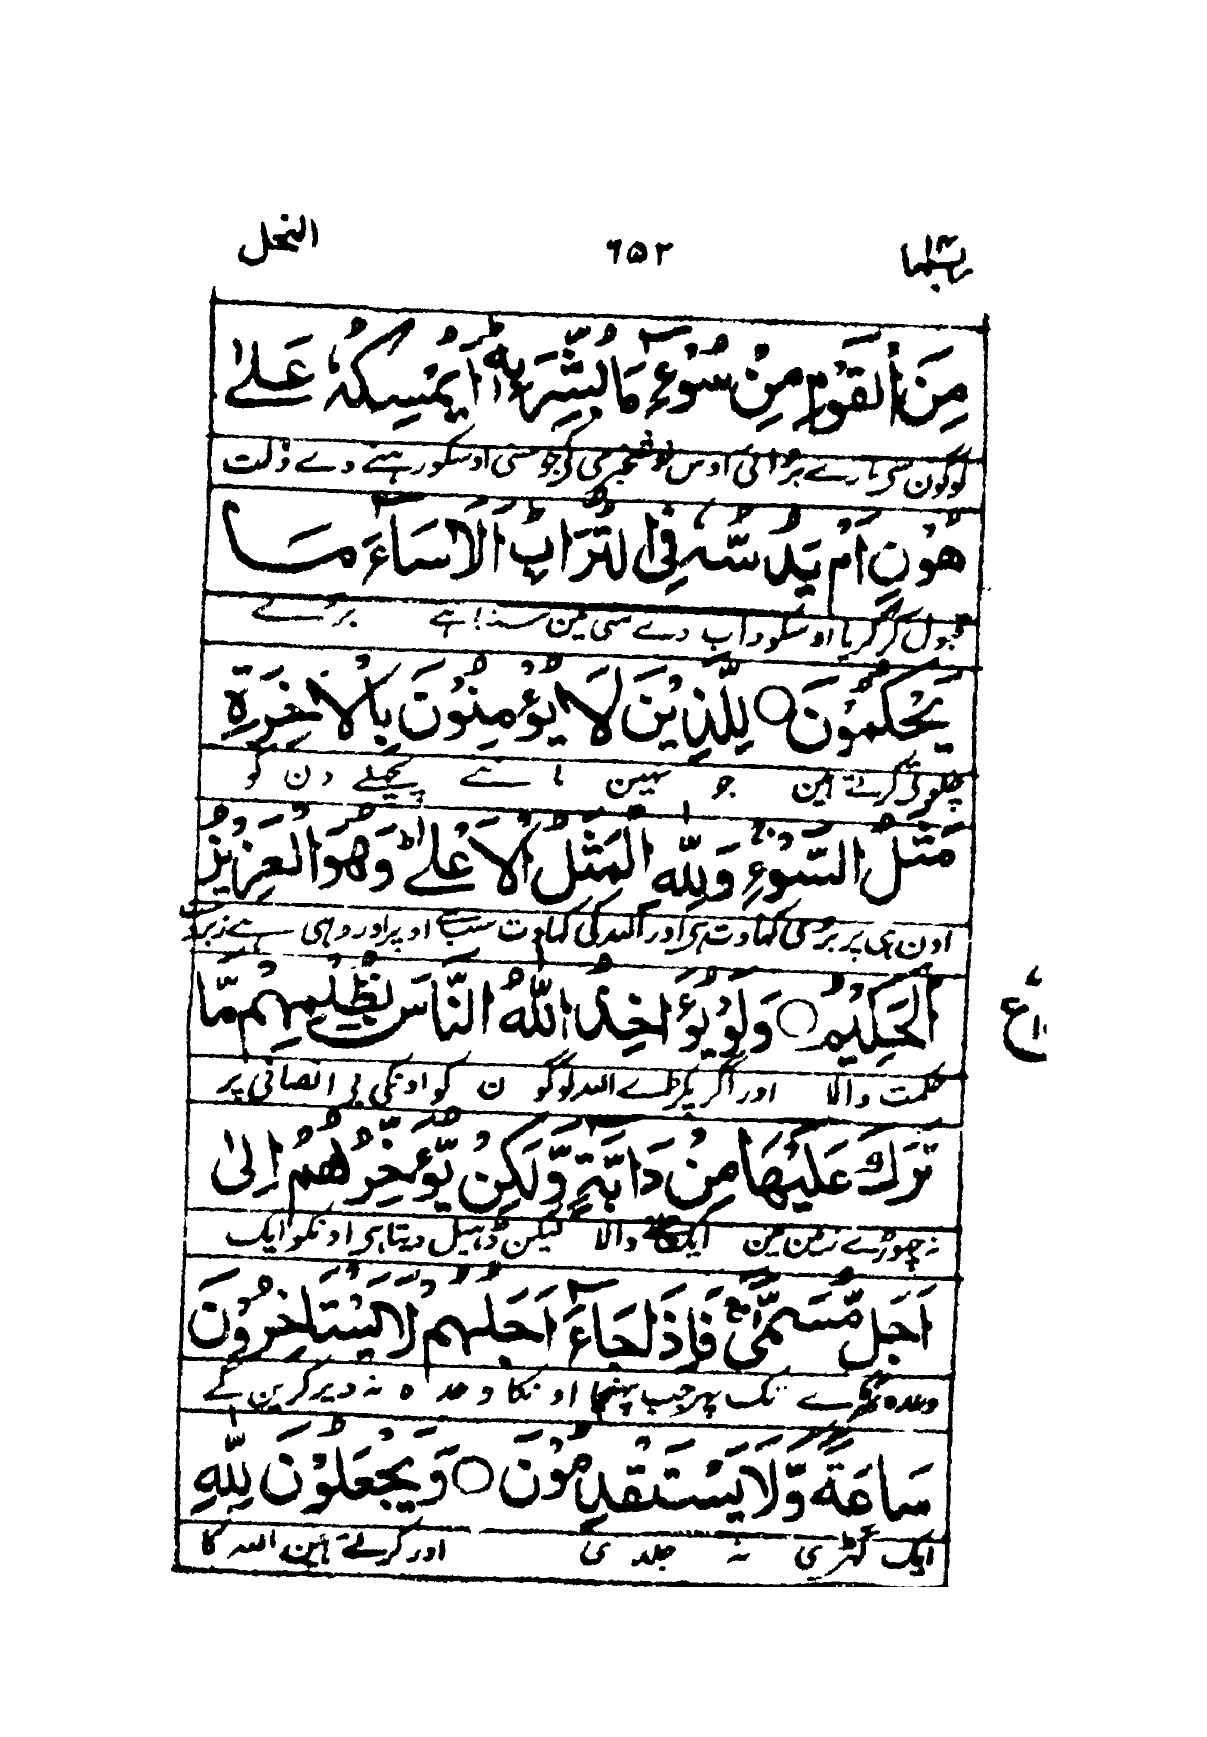 ربما ١٤ ٦٥٢ النحل
مِنَ الْقَوْمِ مِنْ سُوْٓءِ مَا بُشِّرَ بِهٖ ؕ اَيُمْسِكُهٗ عَلٰى
لوگون سی مارے برائی اوس خوشخبری کی جو سنی اوسکو رہنے دے ذلت
هُوْنٍ اَمْ يَدُسُّهٗ فِى التُّرَابِ ؕ اَلَا سَآءَ مَا
قبول کر کر یا اوسکو داب دے مٹی مین سنتا ہے برے
يَحْكُمُوْنَ ○ لِلَّذِيْنَ لَا يُؤْمِنُوْنَ بِالْاٰخِرَةِ
چکوتی کرتے ہین جو نہین مانتے پچھلے دن کو
مَثَلُ السَّوْءِ ۚ وَلِلّٰهِ الْمَثَلُ الْاَعْلٰى ؕ وَهُوَ الْعَزِيْزُ
اون ہی پر بری کہاوت ہی اور اللہ کی کہاوت سب سے اوپر اور وہی ہے زبردست
الْحَكِيْمُ ○ وَلَوْ يُؤَاخِذُ اللّٰهُ النَّاسَ بِظُلْمِهِمْ مَّا
ع
حکمت والا اور اگر پکڑے اللہ لوگون کو اونکی بی انصافی پر
تَرَكَ عَلَيْهَا مِنْ دَآبَّةٍ وَّلٰكِنْ يُّؤَخِّرُهُمْ اِلٰٓى
نہ چھوڑے زمین مین ایک والا لیکن ڈہیل دیتا ہی اونکو ایک
اَجَلٍ مُّسَمًّى ۚ فَاِذَا جَآءَ اَجَلُهُمْ لَا يَسْتَاْخِرُوْنَ
وعدہ ٹھہرے تک پہر جب پہنچا اونکا وعدہ نہ دیر کرین گے
سَاعَةً وَّلَا يَسْتَقْدِمُوْنَ ○ وَيَجْعَلُوْنَ لِلّٰهِ
ایک گھڑی نہ جلدی اور کرتے ہین اللہ کا